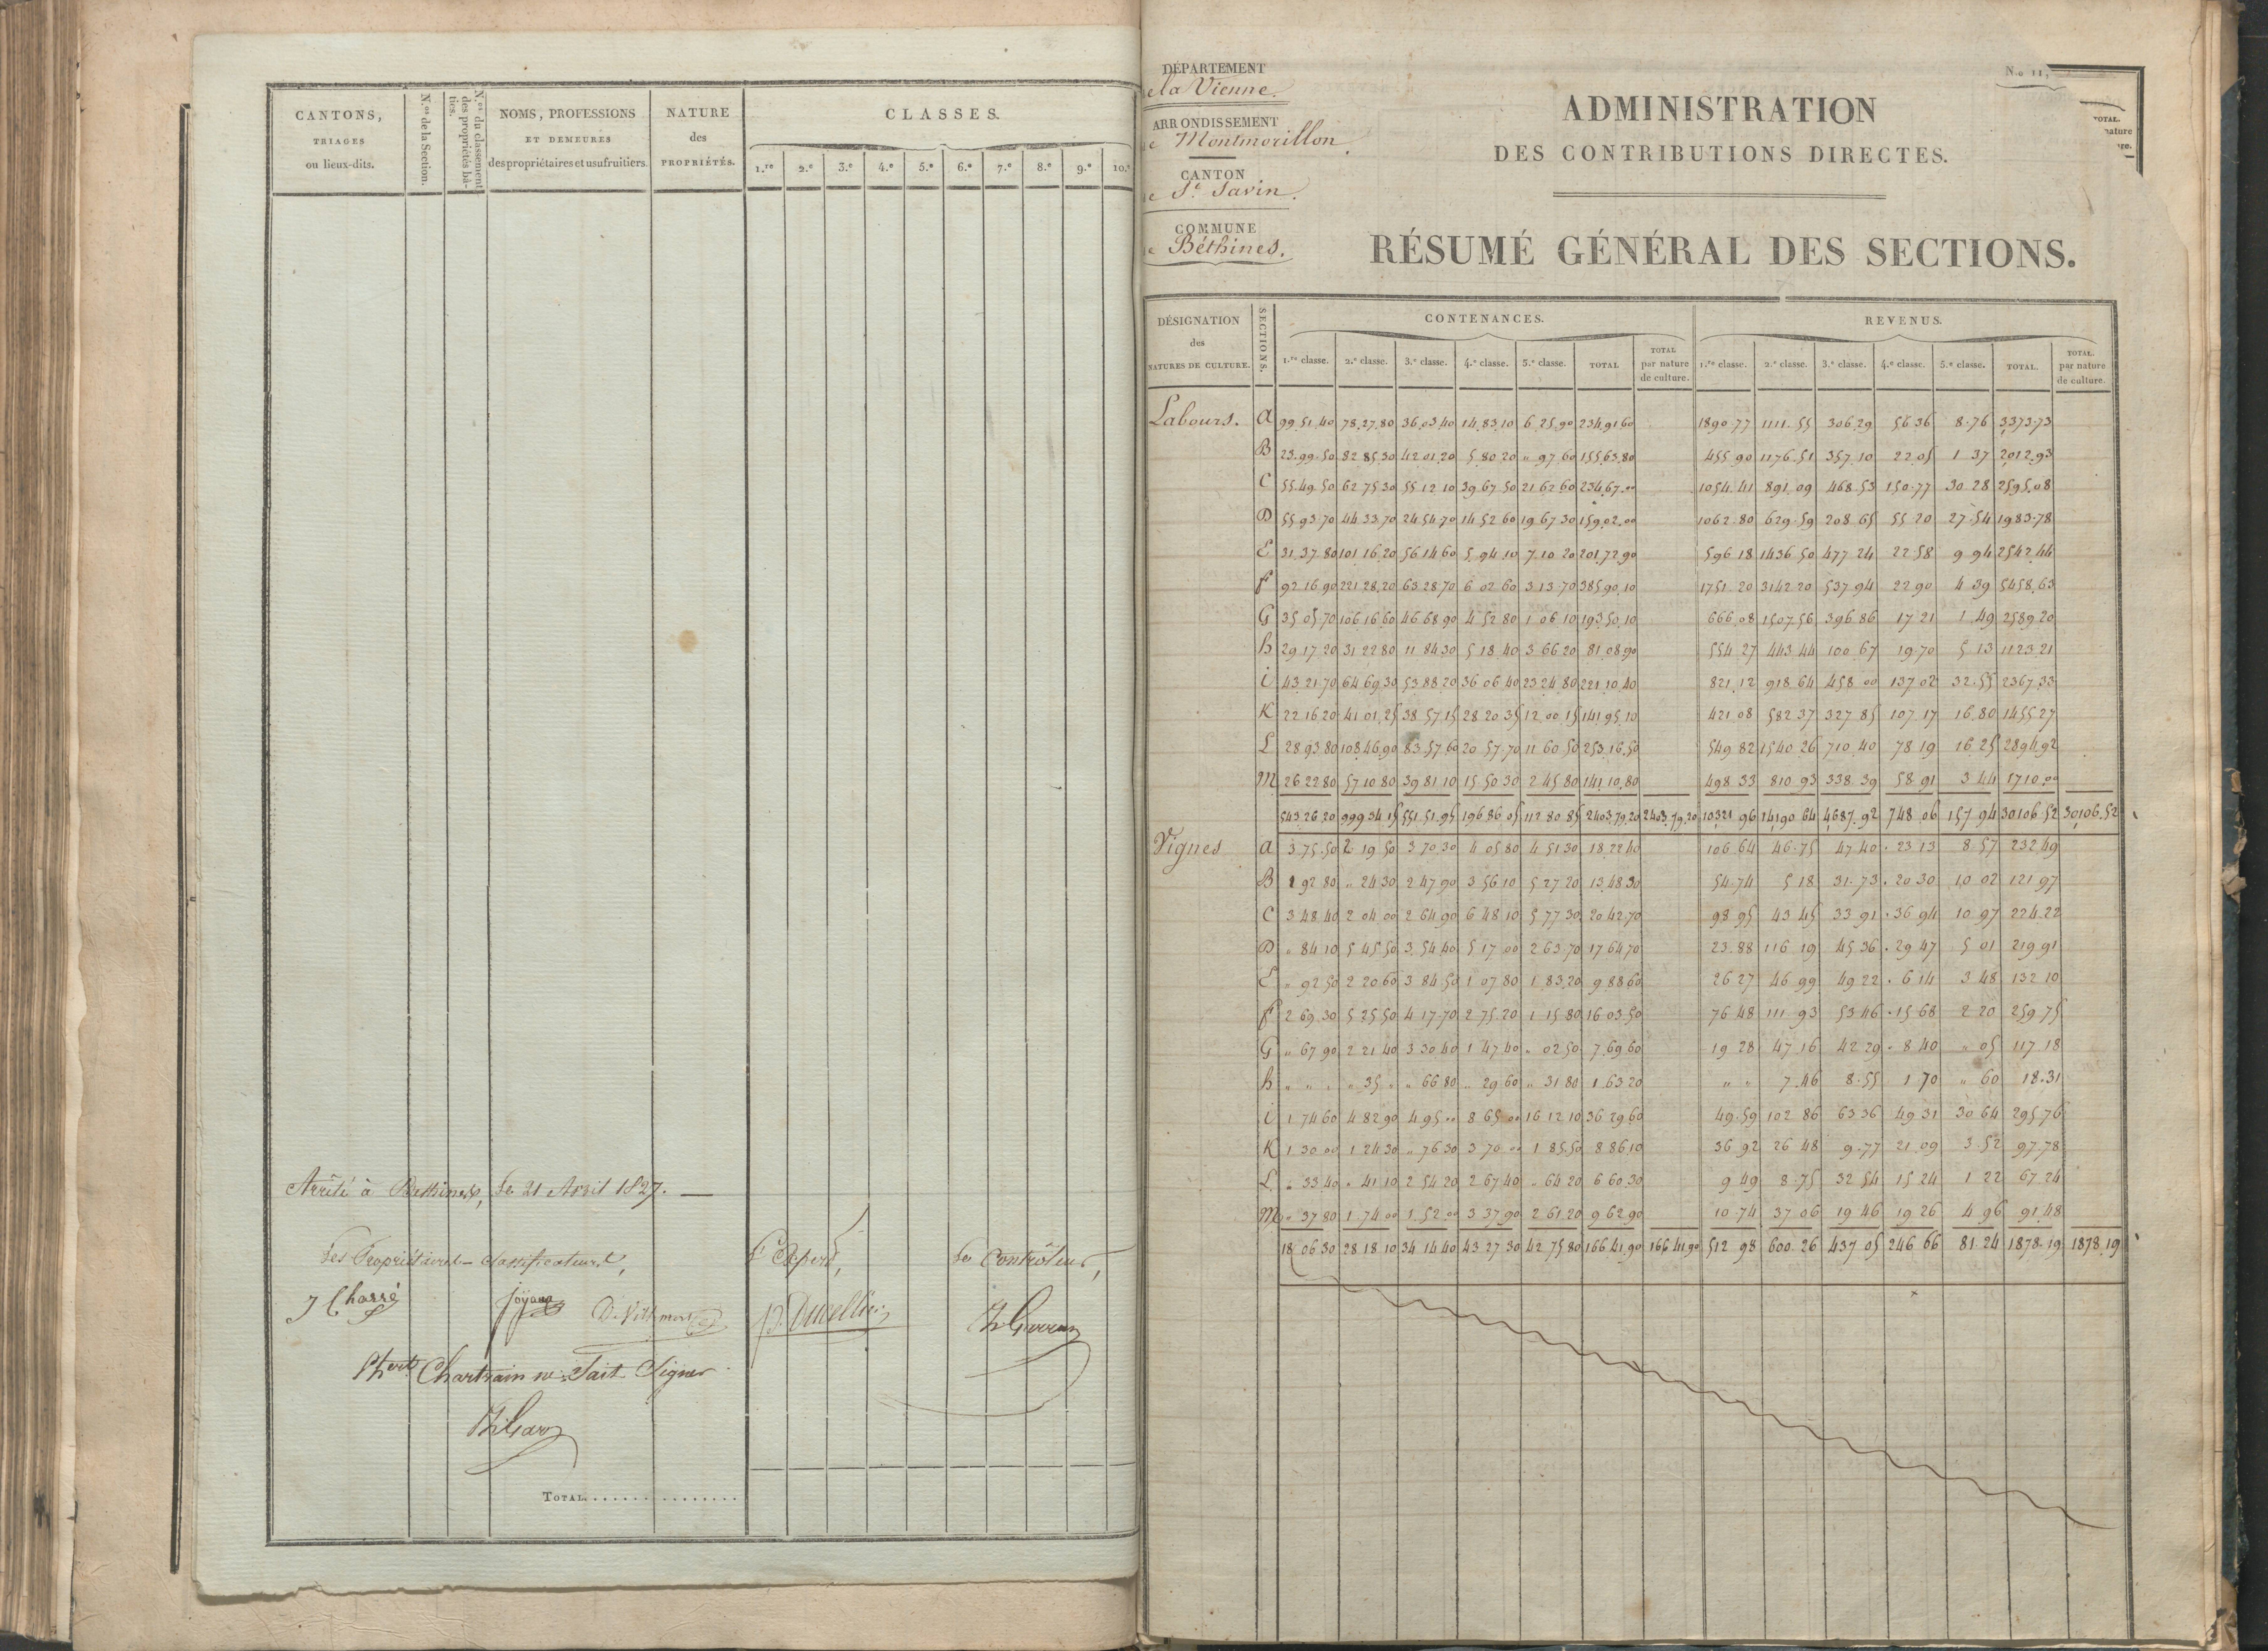 CANTONS,
TRIAGES
ou lieux-dits.
N.os de la Section.
N.os du classement
des propriétés bâ-
ties.
NOMS, PROFESSIONS
ET DEMEURES
des propriétaires et usufruitiers.
NATURE
des
PROPRIÉTÉS.
CLASSES.
1.re 2.e 3.e 4.e 5.e 6.e 7.e 8.e 9.e 10.e
Arrêté à Bethines, le 21 Avril 1827.
Les Propriétaires-Classificateurs, L'Expert, Le Contrôleur,
J Chassé
Chartrain ne Sait Signer
TOTAL
DÉPARTEMENT
de la Vienne.
ARRONDISSEMENT
de Montmorillon.
CANTON
de St. Savin.
COMMUNE
de Béthines.
N.o 11,
ADMINISTRATION
DES CONTRIBUTIONS DIRECTES.
RÉSUMÉ GÉNÉRAL DES SECTIONS.
TOTAL.
nature
re.
DÉSIGNATION
des
NATURES DE CULTURE.
SECTIONS.
CONTENANCES.
1.re classe. 2.e classe. 3.e classe. 4.e classe. 5.e classe. TOTAL TOTAL par nature de culture.
REVENUS.
1.re classe. 2.e classe. 3.e classe. 4.e classe. 5.e classe. TOTAL. TOTAL. par nature de culture.
Labours. A 99.51.40 78.27.80 36.03.40 14.83.10 6.25.90 234.91.60 1890.77 1111.55 306.29 56.36 8.76 3373.73
B 23.99.50 82.85.30 42.01.20 5.80.20 " 97.60 155.63.80 455.90 1176.51 357.10 22.05 1.37 2012.93
C 55.49.50 62.75.30 55.12.10 39.67.50 21.62.60 234.67.00 1054.41 891.09 468.53 150.77 30.28 2595.08
D 55.93.70 44.33.70 24.54.70 14.52.60 19.67.30 159.02.00 1062.80 629.59 208.65 55.20 27.54 1983.78
E 31.37.80 101.16.20 56.14.60 5.94.10 7.10.20 201.72.90 596.18 1436.50 477.24 22.58 9.94 2542.44
F 92.16.90 221.28.20 63.28.70 6.02.60 3.13.70 385.90.10 1751.20 3142.20 537.94 22.90 4.39 5458.63
G 35.05.70 106.16.60 46.68.90 4.52.80 1.06.10 193.50.10 666.08 1507.56 396.86 17.21 1.49 2589.20
h 29.17.20 31.22.80 11.84.30 5.18.40 3.66.20 81.08.90 554.27 443.44 100.67 19.70 5.13 1123.21
i 43.21.70 64.69.30 53.88.20 36.06.40 23.24.80 221.10.40 821.12 918.64 458.00 137.02 32.55 2367.33
K 22.16.20 41.01.25 38.57.15 28.20.35 12.00.15 141.95.10 421.08 582.37 327.85 107.17 16.80 1455.27
L 28.93.80 108.46.90 83.57.60 20.57.70 11.60.50 253.16.50 549.82 1540.26 710.40 78.19 16.25 2894.92
M 26.22.80 57.10.80 39.81.10 15.50.30 2.45.80 141.10.80 498.33 810.93 338.39 58.91 3.44 1710.00
543.26.20 999.34.15 551.51.95 196.86.05 112.80.85 2403.79.20 2403.79.20 10321.96 14190.64 4687.92 748.06 157.94 30106.52 30106.52
Vignes A 3.75.50 2.19.50 3.70.30 4.05.80 4.51.30 18.22.40 106.64 46.75 47.40 23.13 8.57 232.49
B 1.92.80 " 24.30 2.47.90 3.56.10 5.27.20 13.48.30 54.74 5.18 31.73 20.30 10.02 121.97
C 3.48.40 2.04.00 2.64.90 6.48.10 5.77.30 20.42.70 98.95 43.45 33.91 36.94 10.97 224.22
D " 84.10 5.45.50 3.54.40 5.17.00 2.63.70 17.64.70 23.88 116.19 45.36 29.47 5.01 219.91
E " 92.50 2.20.60 3.84.50 1.07.80 1.83.20 9.88.60 26.27 46.99 49.22 6.14 3.48 132.10
F 2.69.30 5.25.50 4.17.70 2.75.20 1.15.80 16.03.50 76.48 111.93 53.46 15.68 2.20 259.75
G " 67.90 2.21.40 3.30.40 1.47.40 " 02.50 7.69.60 19.28 47.16 42.29 8.40 " 05 117.18
h " " " " 35 " " 66.80 " 29.60 " 31.80 1.63.20 " " 7.46 8.55 1.70 " 60 18.31
i 1.74.60 4.82.90 4.95.00 8.65.00 16.12.10 36.29.60 49.59 102.86 63.36 49.31 30.64 295.76
K 1.30.00 1.24.30 " 76.30 3.70.00 1.85.50 8.86.10 36.92 26.48 9.77 21.09 3.52 97.78
L " 33.40 " 41.10 2.54.20 2.67.40 " 64.20 6.60.30 9.49 8.75 32.54 15.24 1.22 67.24
M " 37.80 1.74.00 1.52.00 3.37.90 2.61.20 9.62.90 10.74 37.06 19.46 19.26 4.96 91.48
18.06.30 28.18.10 34.14.40 43.27.30 42.75.80 166.41.90 166.41.90 512.98 600.26 437.05 246.66 81.24 1878.19 1878.19